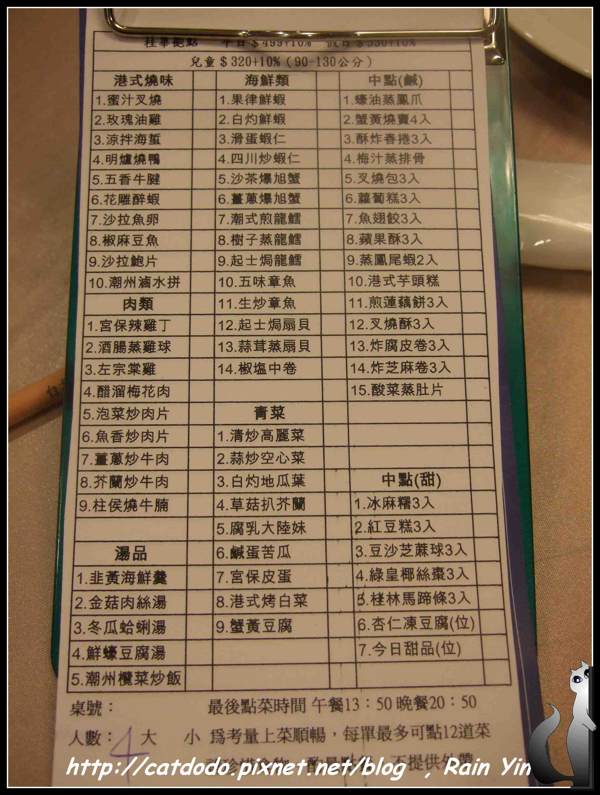 兒童$320+10%(90-130公分)
港式燒味
1.蜜汁叉燒
2.玫瑰油雞
3.涼拌海蜇
4.明爐燒鴨
5.五香牛腱
6.花雕醉蝦
7.沙拉魚卵
8.椒麻豆魚
9.沙拉鮑片
10.潮州滷水拼
肉類
1.宮保辣雞丁
2.酒腸蒸雞球
3.左宗棠雞
4.醋溜梅花肉
5.泡菜炒肉片
6.魚香炒肉片
7.薑蔥炒牛肉
8.芥蘭炒牛肉
9.柱侯燒牛腩
湯品
1.韭黃海鮮羹
2.金菇肉絲湯
3.冬瓜蛤蜊湯
4.鮮蠔豆腐湯
5.潮州欖菜炒飯
海鮮類
1.果律鮮蝦
2.白灼鮮蝦
3.滑蛋蝦仁
4.四川炒蝦仁
5.沙茶爆旭蟹
6.薑蔥爆旭蟹
7.潮式煎龍鱈
8.樹子蒸龍鱈
9.起士焗龍鱈
10.五味章魚
11.生炒章魚
12.起士焗扇貝
13.蒜茸蒸扇貝
14.椒塩中卷
青菜
1.清炒高麗菜
2.蒜炒空心菜
3.白灼地瓜葉
4.草菇扒芥蘭
5.腐乳大陸妹
6.鹹蛋苦瓜
7.宮保皮蛋
8.港式烤白菜
9.蟹黃豆腐
中點(鹹)
1.蠔油蒸鳳爪
2.蟹黃燒賣4入
3.酥炸春捲3入
4.梅汁蒸排骨
5.叉燒包3入
6.蘿蔔糕3入
7.魚翅餃3入
8.蘋果酥3入
9.蒸鳳尾蝦2入
10.港式芋頭糕
11.煎蓮藕餅3入
12.叉燒酥3入
13.炸腐皮卷3入
14.炸芝麻卷3入
15.酸菜蒸肚片
中點(甜)
1.冰麻糬3入
2.紅豆糕3入
3.豆沙芝蔴球3入
4.綠皇椰絲棗3入
5.桂林馬蹄條3入
6.杏仁凍豆腐(位)
7.今日甜品(位)
桌號：
最後點菜時間 午餐13：50 晚餐20：50
人數：4 大 小 爲考量上菜順暢，每單最多可點12道菜
http://catdodo.pixnet.net/blog , Rain Yin